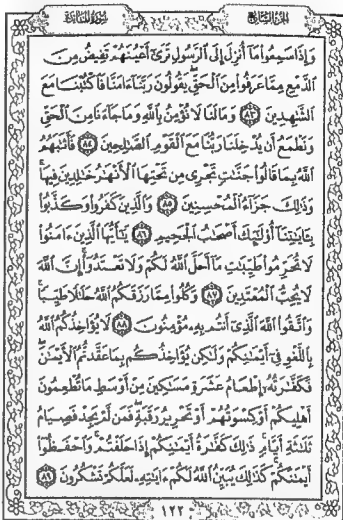 الجزء السابع سورة المائدة
وَإِذَا سَمِعُوا مَا أُنزِلَ إِلَى الرَّسُولِ تَرَىٰ أَعْيُنَهُمْ تَفِيضُ مِنَ
الدَّمْعِ مِمَّا عَرَفُوا مِنَ الْحَقِّ يَقُولُونَ رَبَّنَا آمَنَّا فَاكْتُبْنَا مَعَ
الشَّاهِدِينَ ٨٣ وَمَا لَنَا لَا نُؤْمِنُ بِاللَّهِ وَمَا جَاءَنَا مِنَ الْحَقِّ
وَنَطْمَعُ أَن يُدْخِلَنَا رَبُّنَا مَعَ الْقَوْمِ الصَّالِحِينَ ٨٤ فَأَثَابَهُمُ
اللَّهُ بِمَا قَالُوا جَنَّاتٍ تَجْرِي مِن تَحْتِهَا الْأَنْهَارُ خَالِدِينَ فِيهَا
وَذَٰلِكَ جَزَاءُ الْمُحْسِنِينَ ٨٥ وَالَّذِينَ كَفَرُوا وَكَذَّبُوا
بِآيَاتِنَا أُولَٰئِكَ أَصْحَابُ الْجَحِيمِ ٨٦ يَا أَيُّهَا الَّذِينَ آمَنُوا
لَا تُحَرِّمُوا طَيِّبَاتِ مَا أَحَلَّ اللَّهُ لَكُمْ وَلَا تَعْتَدُوا إِنَّ اللَّهَ
لَا يُحِبُّ الْمُعْتَدِينَ ٨٧ وَكُلُوا مِمَّا رَزَقَكُمُ اللَّهُ حَلَالًا طَيِّبًا
وَاتَّقُوا اللَّهَ الَّذِي أَنتُم بِهِ مُؤْمِنُونَ ٨٨ لَا يُؤَاخِذُكُمُ اللَّهُ
بِاللَّغْوِ فِي أَيْمَانِكُمْ وَلَٰكِن يُؤَاخِذُكُم بِمَا عَقَّدتُّمُ الْأَيْمَانَ
فَكَفَّارَتُهُ إِطْعَامُ عَشَرَةِ مَسَاكِينَ مِنْ أَوْسَطِ مَا تُطْعِمُونَ
أَهْلِيكُمْ أَوْ كِسْوَتُهُمْ أَوْ تَحْرِيرُ رَقَبَةٍ فَمَن لَّمْ يَجِدْ فَصِيَامُ
ثَلَاثَةِ أَيَّامٍ ذَٰلِكَ كَفَّارَةُ أَيْمَانِكُمْ إِذَا حَلَفْتُمْ وَاحْفَظُوا
أَيْمَانَكُمْ كَذَٰلِكَ يُبَيِّنُ اللَّهُ لَكُمْ آيَاتِهِ لَعَلَّكُمْ تَشْكُرُونَ ٨٩
١٢٢